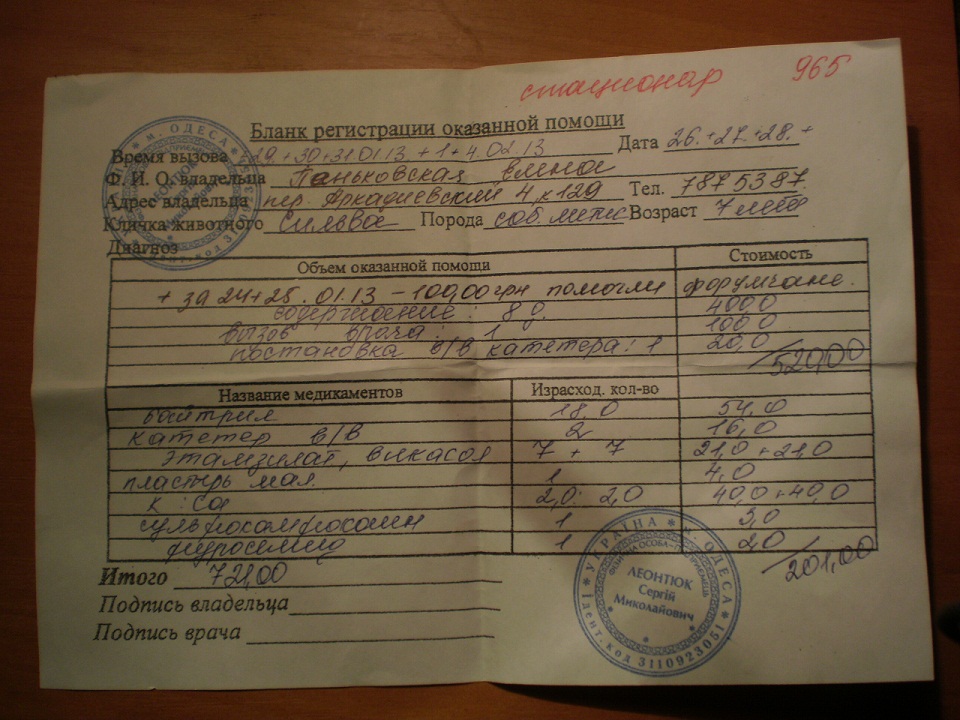 стационар 965
Бланк регистрации оказанной помощи
Время вызова 29.+30+31.01.13.+1+4.02.13 Дата 26.+27.+28.+
Ф. И. О. владельца Паньковская Елена
Адрес владельца пер. Аркадиевский 4, к 129 Тел. 7875387
Кличка животного Сильва Порода соб. метис Возраст 7 лет
Диагноз
Объем оказанной помощи Стоимость
+ за 24+25.01.13 – 100,00 грн помогли форумчане.
содержание: 8 д. 400,0
вызов врача: 1 100,0
постановка в/в катетера: 1 20,0
520,00
Название медикаментов Израсход. кол-во
байтрил 18,0 54,0
катетер в/в 2 16,0
этамзилат, викасол 7 + 7 21,0 + 21,0
пластырь мал. 1 4,0
2,0: 2,0 40,0 + 40,0
сульфокамфокаин 1 3,0
фуросемид 1 2,0
201,00
Итого 721,00
Подпись владельца
Подпись врача
УКРАЇНА * м. ОДЕСА
ФІЗИЧНА ОСОБА-ПІДПРИЄМЕЦЬ
ЛЕОНТЮК
Сергій
Миколайович
ідент. код 3110923051